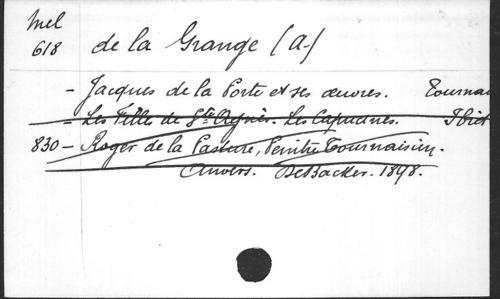 Mel
618
de la Grange (A.)
- Jacques de la Porte et ses œuvres. Tournai
- Les Filles de Ste Agnès. Les Capucines. Ibid
830 - Roger de la Pasture, Peintre Tournaisien.
Anvers. DeBacker. 1898.